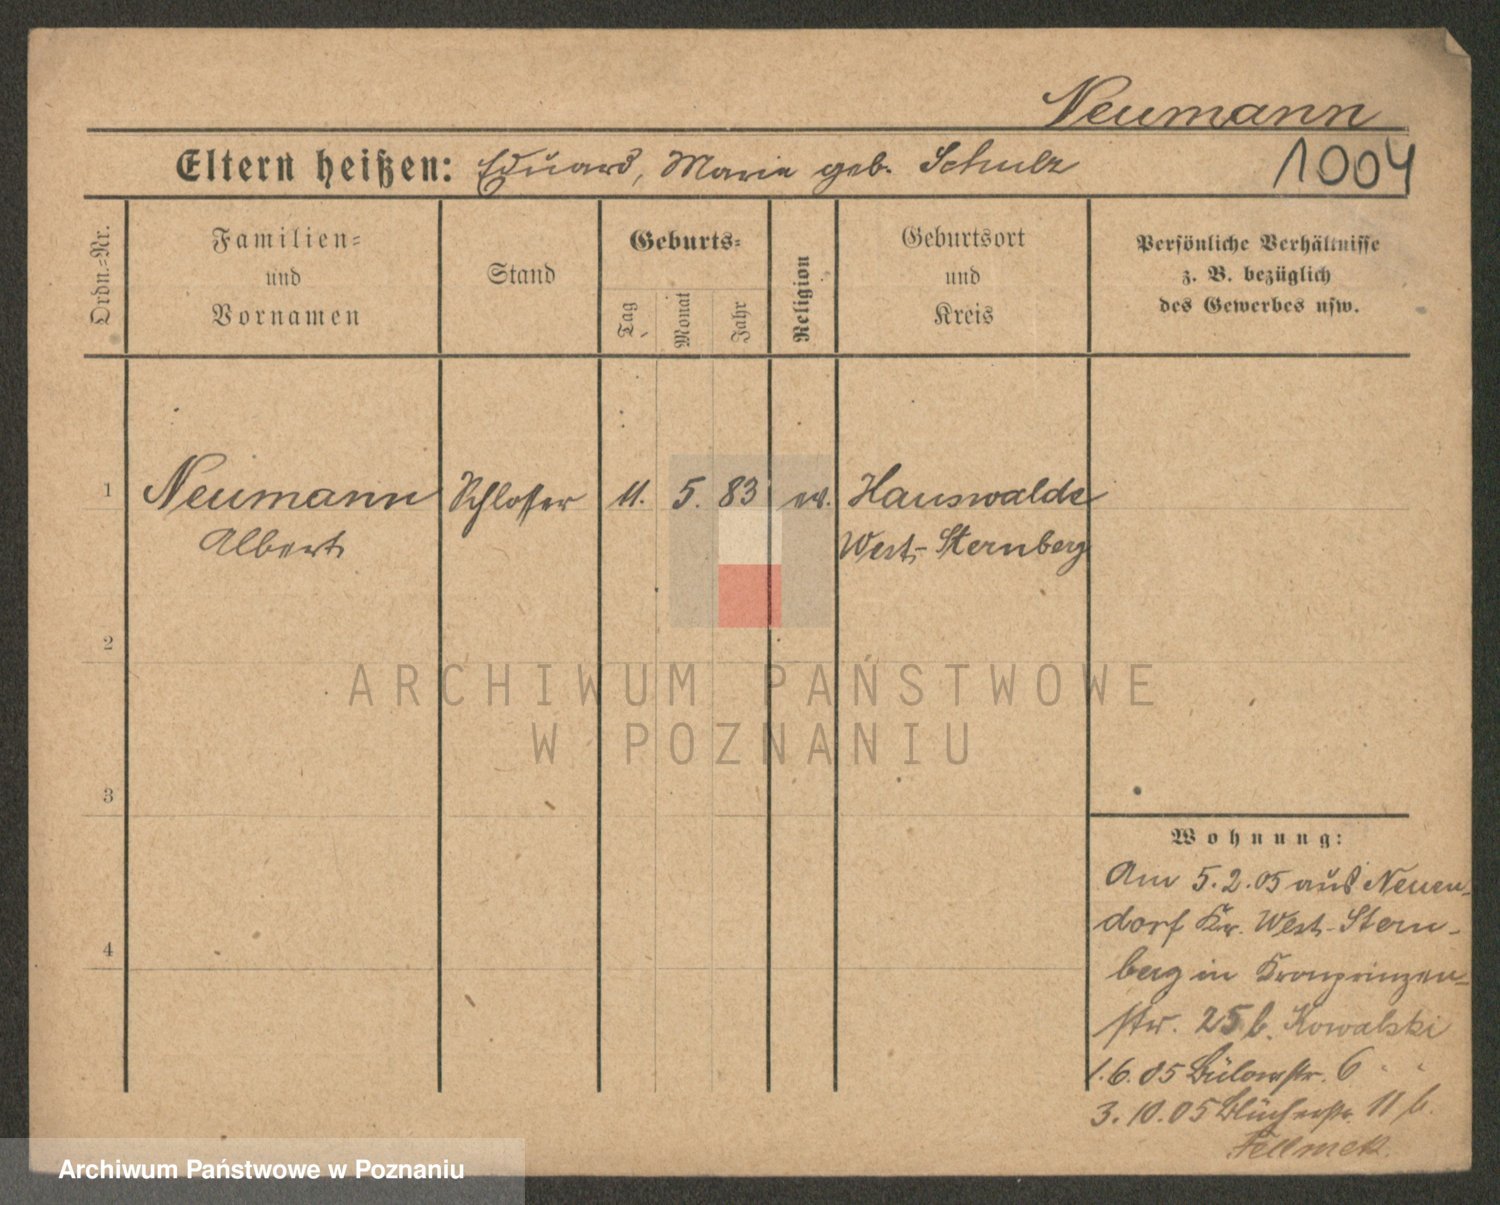 Neumann
Eltern heißen: Eduard, Marie geb. Schulz
1004
Ordn.-Nr.
Familien-
und
Vornamen
Stand
Geburts-
Tag
Monat
Jahr
Religion
Geburtsort
und
Kreis
Persönliche Verhältnisse
z. B. bezüglich
des Gewerbes usw.
1 Neumann Schlosser 11. 5. 83 ev. Hauswalde
Albert West-Sternberg
2
3
4
Wohnung:
Am 5.2.05 aus Neuen-
dorf Kr. West-Stern-
berg in Kronprinzen-
str. 25 b. Kowalski
1.6.05 Bülowstr. 6 " "
3.10.05 Blücherstr. 11 b.
ARCHIWUM PAŃSTWOWE
W POZNANIU
Archiwum Państwowe w Poznaniu